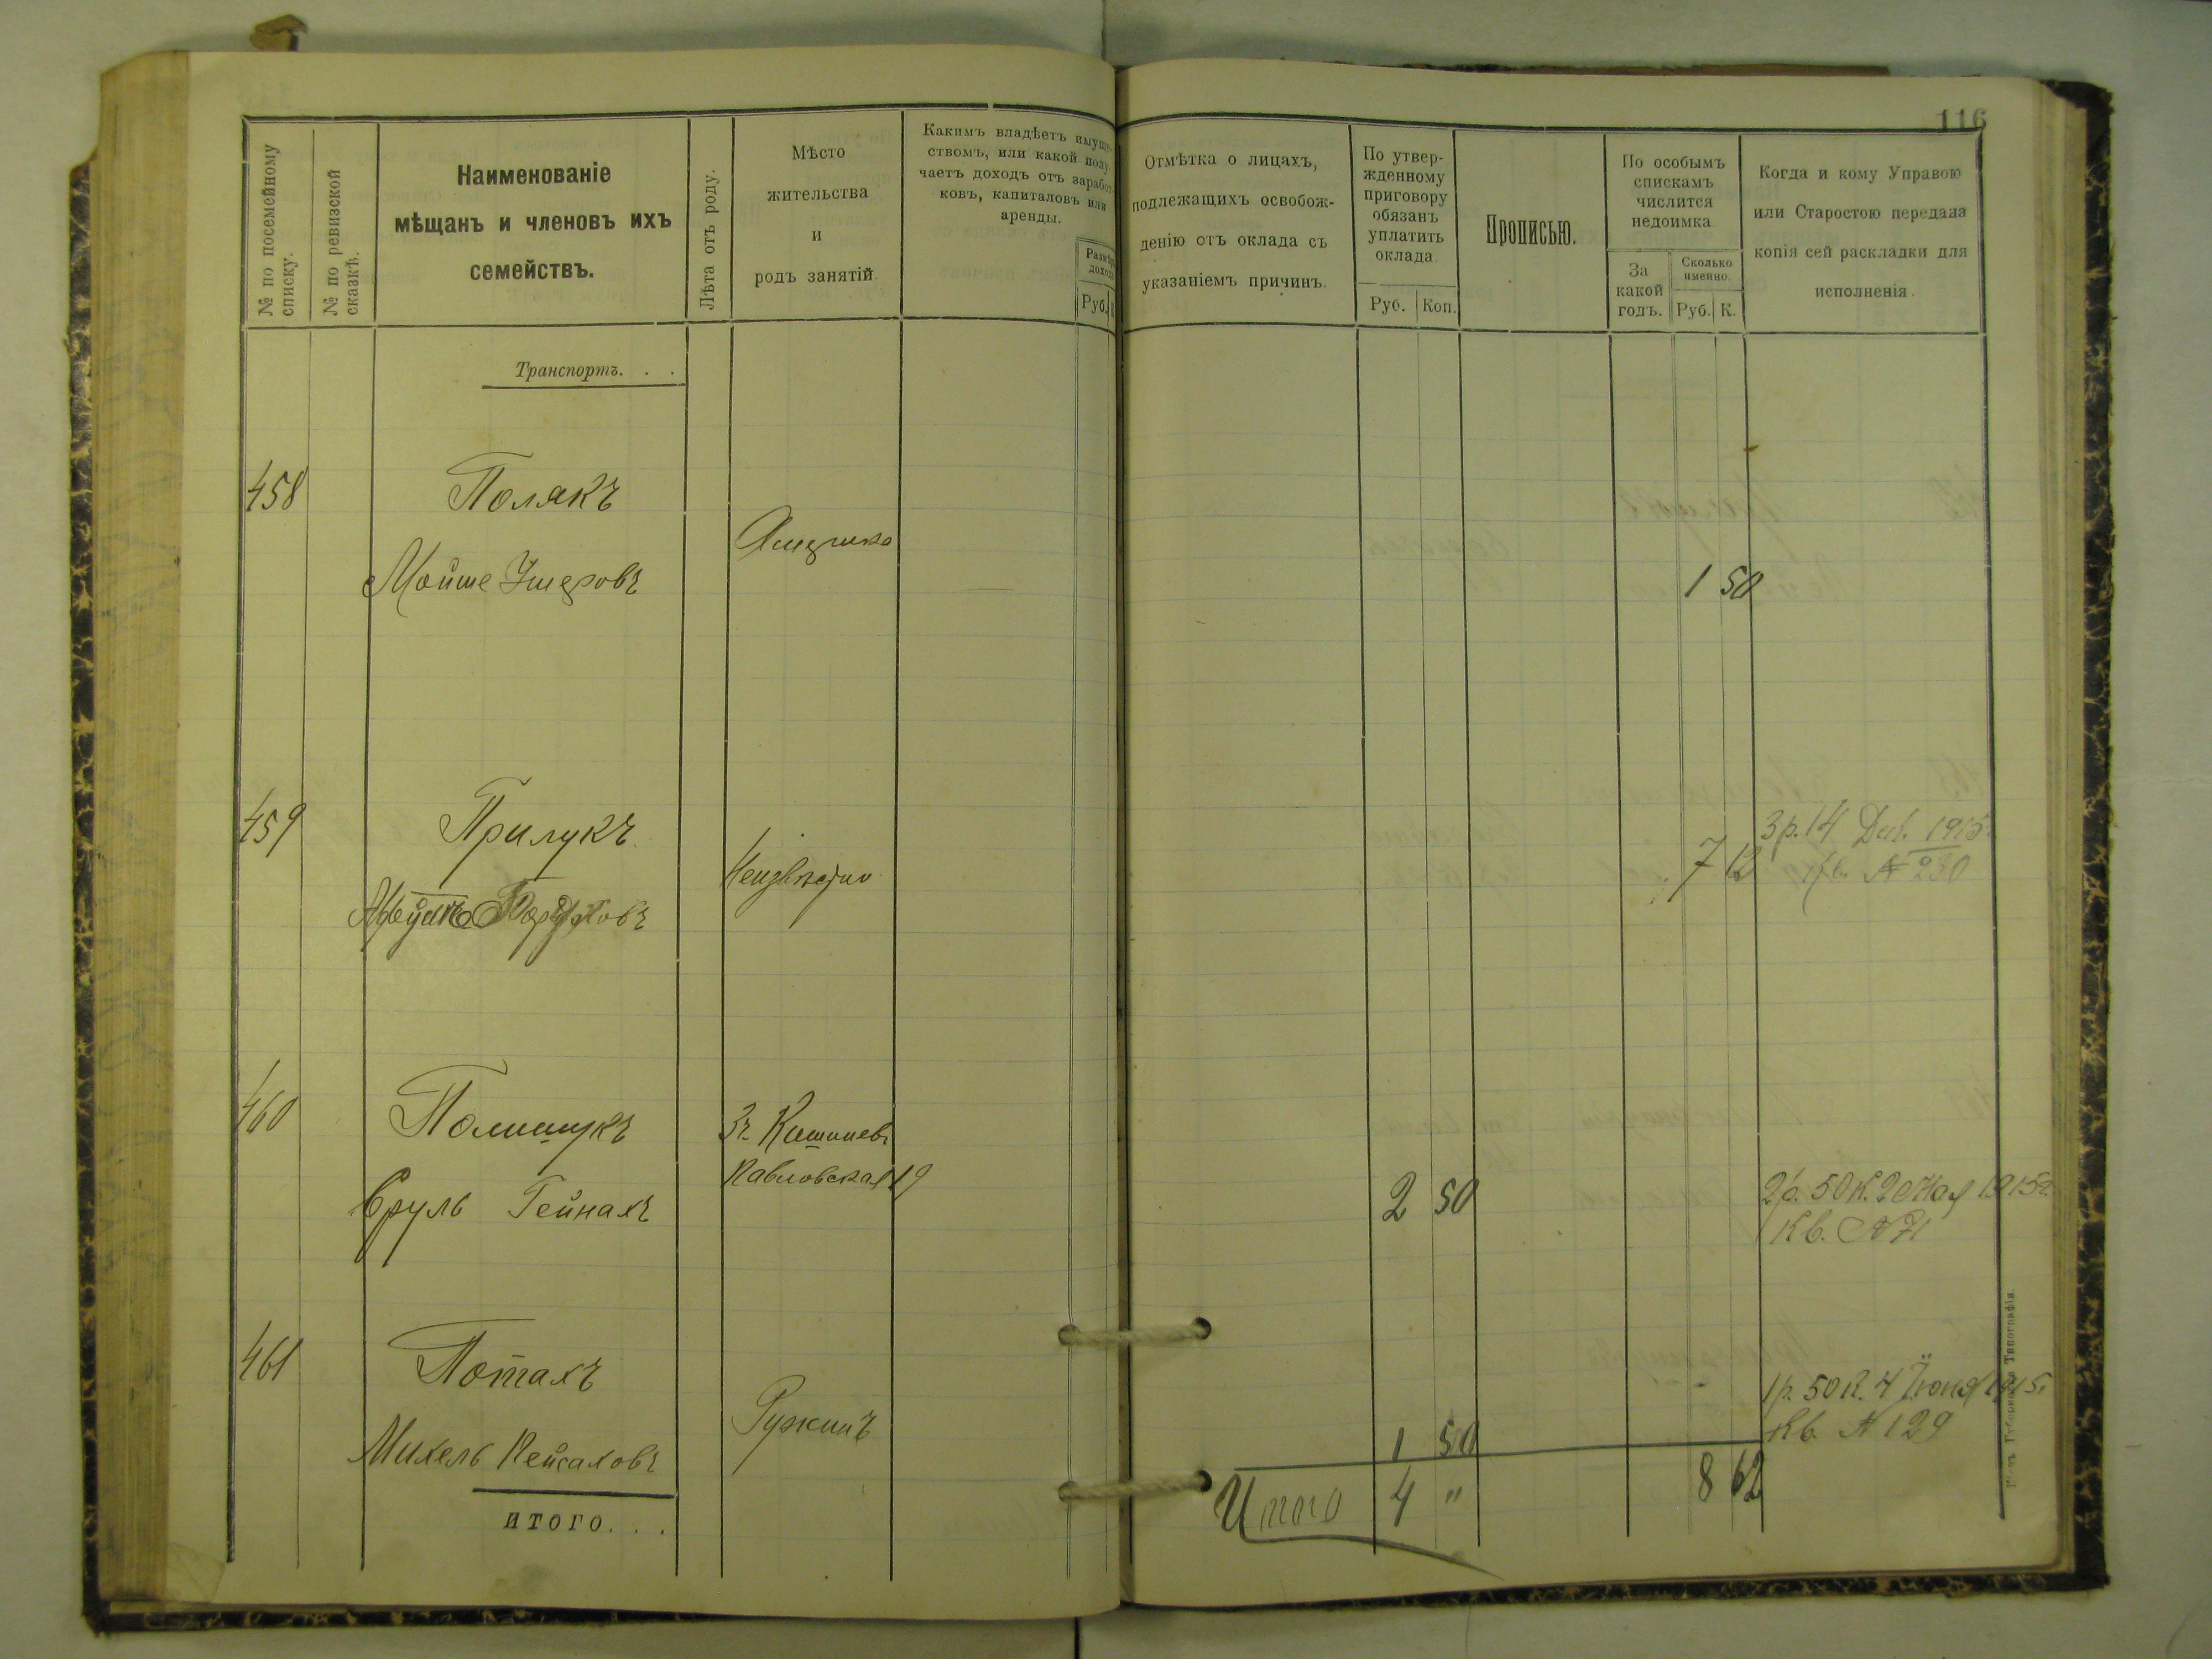 116
№ по посемейному
списку.
№ по ревизской
сказкѣ.
Наименованіе
мѣщанъ и членовъ ихъ
семействъ.
Лѣта отъ роду.
Мѣсто
жительства
и
родъ занятій.
Какимъ владѣетъ имуще-
ствомъ, или какой полу-
чаетъ доходъ отъ заработ-
ковъ, капиталовъ или
аренды.
Размѣръ
дохода
Руб.
Отмѣтка о лицахъ,
подлежащихъ освобож-
денію отъ оклада съ
указаніемъ причинъ.
По утвер-
жденному
приговору
обязанъ
уплатить
оклада.
Руб. Коп.
Прописью.
По особымъ
спискамъ
числится
недоимка
За
какой
годъ.
Сколько
именно.
Руб. К.
Когда и кому Управою
или Старостою передала
копія сей раскладки для
исполненія.
Транспортъ. . .
458 Полякъ
Америка
Мойше Умеровъ 1 50
459 Прилукъ 3р. 14 Дек. 1915
Неизвѣстно 7 12 кв. № 230
460 Полищукъ Зъ Кишиневъ
Павловская 19
Сруль Гейнахъ 2 50 2р. 50 к. 2 Мая 1915г.
Кв. № 71
461 Потахъ 1р. 50 к. 4 Июня 1915
Ружинъ Кв. № 129
Михель Пейсаховъ 1 50
итого. . . Итого 4 " 8 62